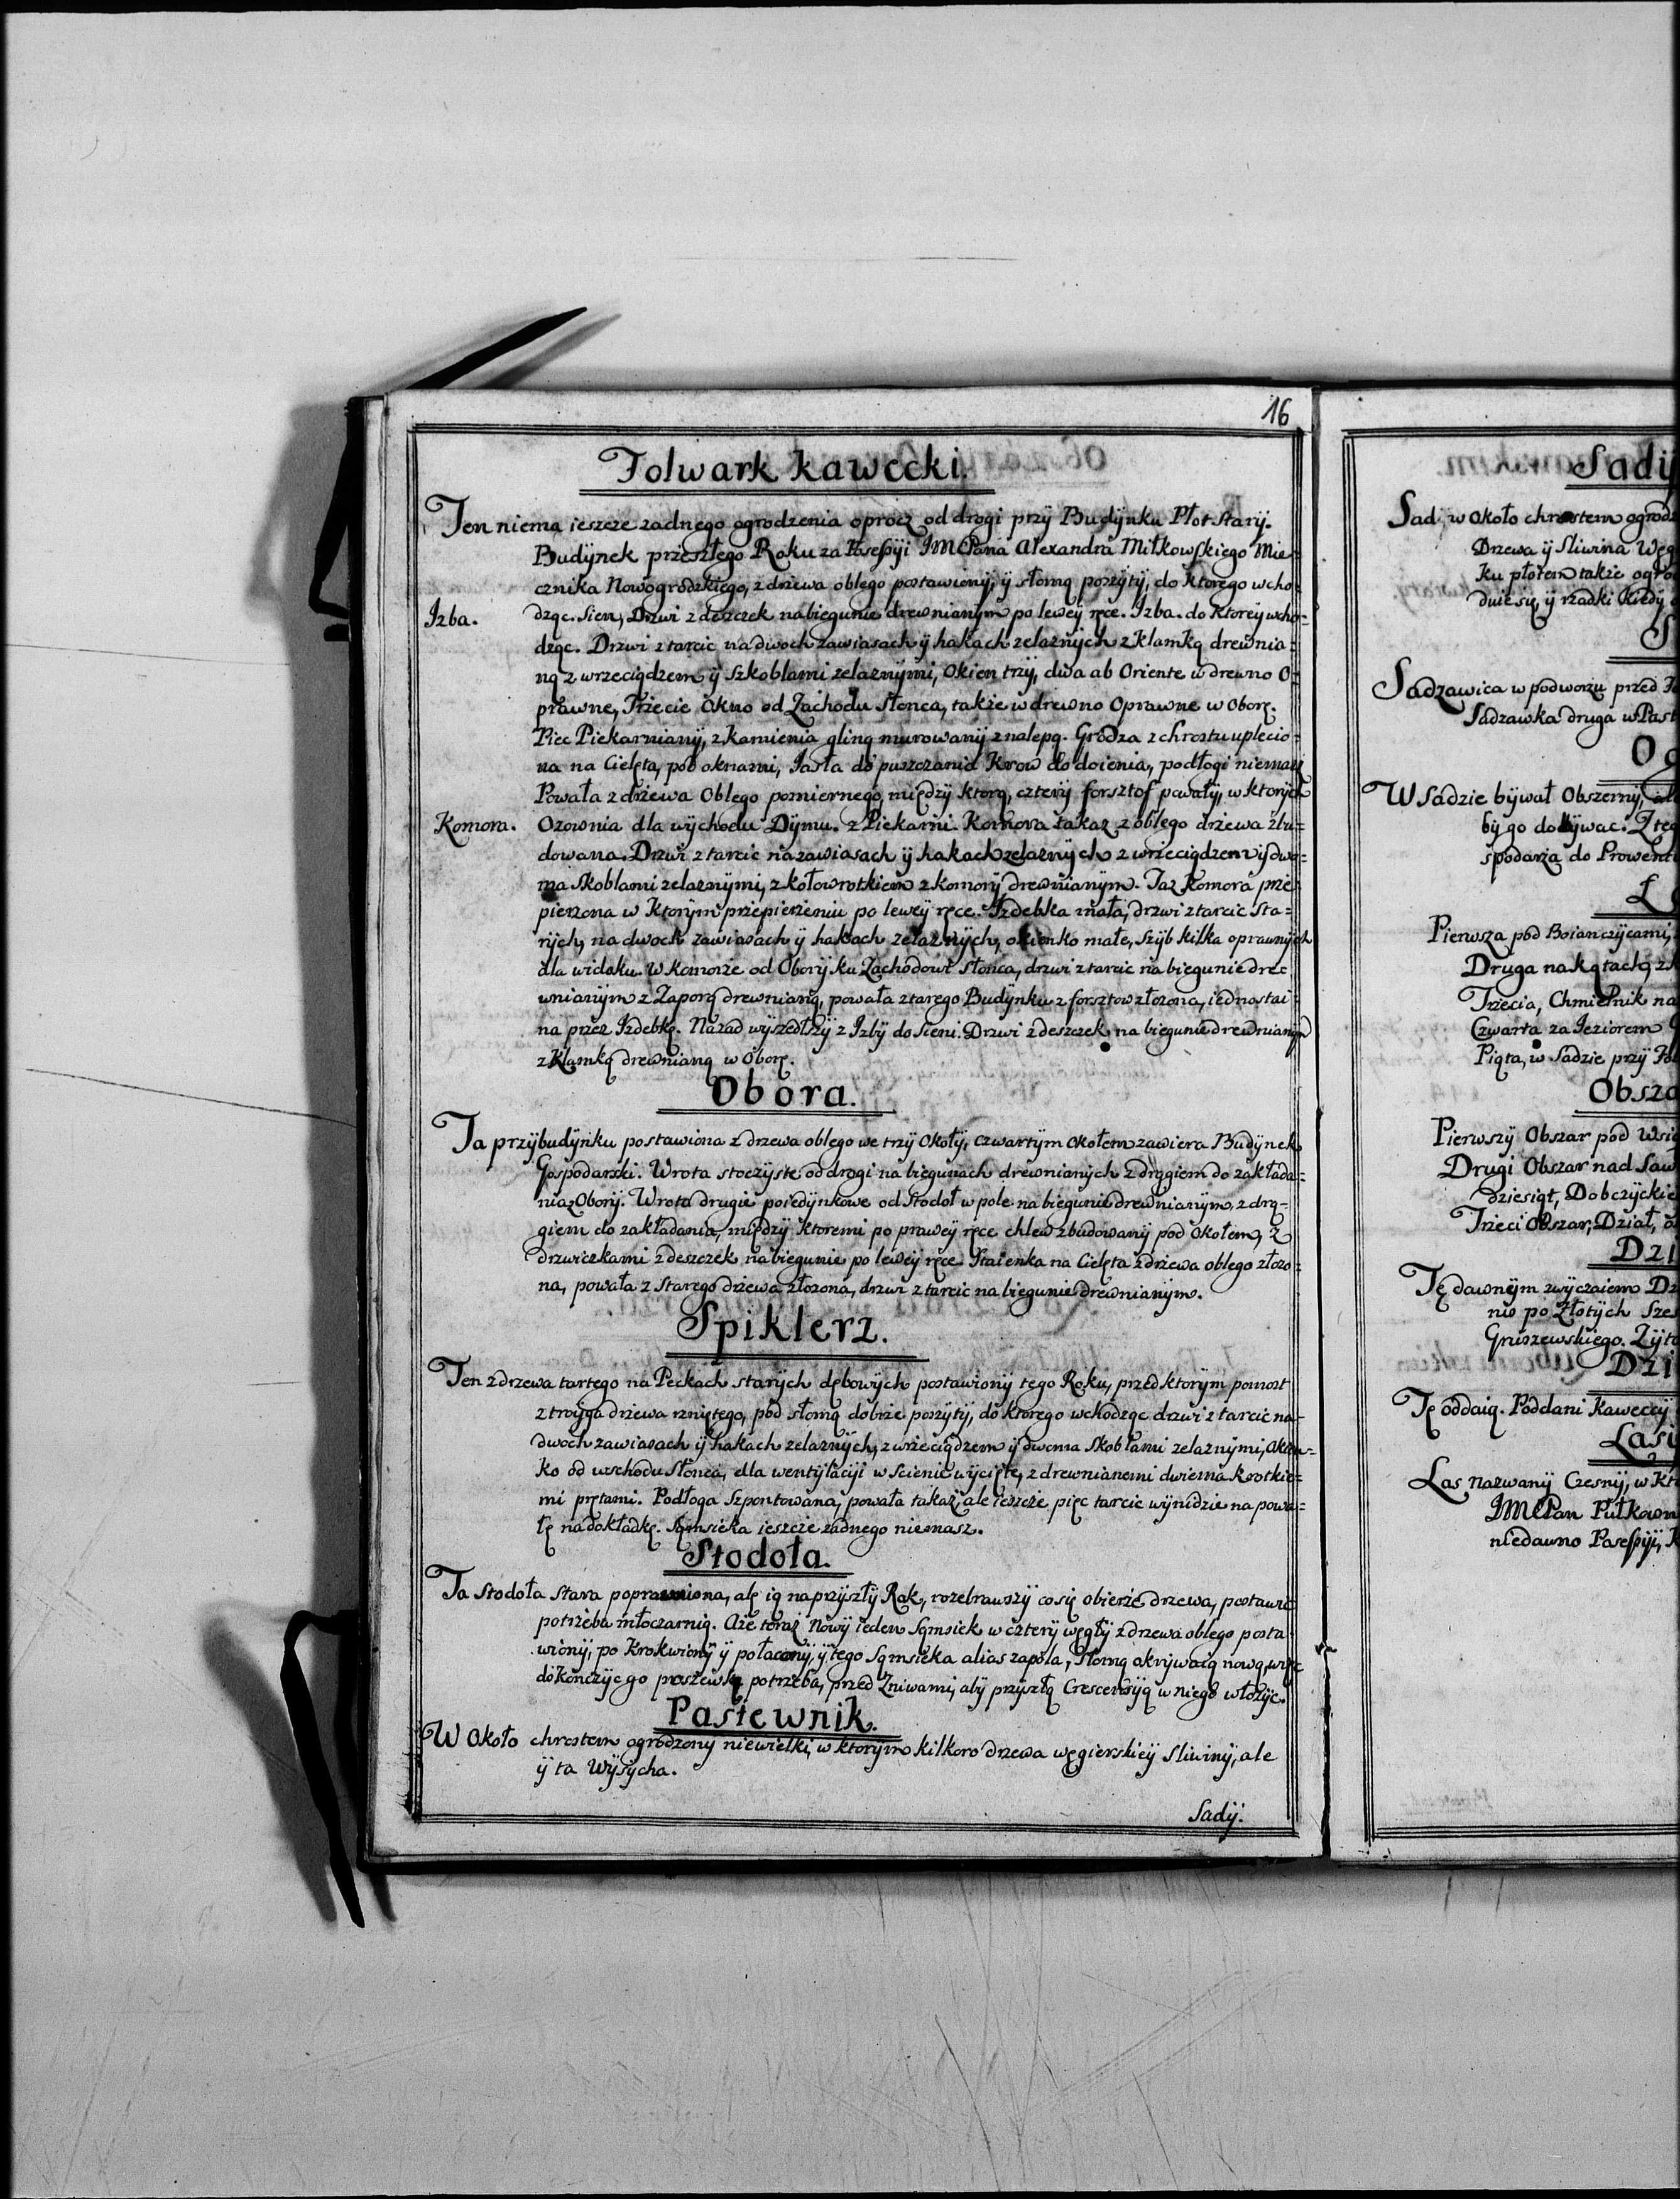 16
Folwark kawecki.
Ten niema ieszcze zadnego ogrodzenia oprocz od drogi przÿ Budÿnku Płot starÿ.
Budÿnek przeszłego Roku za Posessÿi JMCPana Alexandra Miłkowskiego Mie=
cznika Nowogrodzkiego, z drzewa oblego postawionÿ, ÿ słomą poszÿtÿ, do ktorego wcho=
Izba. dząc. Sien, Drzwi z deszczek na biegunie drewnianÿm po leweÿ ręce. Izba. do ktoreÿ wcho=
dząc. Drzwi z tarcic na dwoch zawiasach ÿ hakach zelaznÿch z klamką drewnia=
ną z wrzeciądzem ÿ Szkoblami zelaznÿmi, Okien trzÿ, dwa ab Oriente w drewno O=
prawne, Trzecie Okno od Zachodu słonca, także w drewno Oprawne w Oborę.
Piec Piekarnianÿ, z kamienia gliną murowanÿ z nalepą. Grodza z chrostu uplecio=
na na Cielęta, pod oknami, Jasła do puszczania Krow do doienia, podłogi niemasz
Powała z drzewa Oblego pomiernego, międzÿ ktorą, czterÿ forsztof powałÿ, w ktorÿch
Komora. Ozownia dla wÿchodu Dÿmu. z Piekarni. Komora takaz z oblego drzewa zbu=
dowana. Drzwi z tarcic na zawiasach ÿ hakach zelaznÿch z wrzeciądzem ÿ dwo=
ma skoblami zelaznÿmi, z kołowrotkiem z komorÿ drewnianÿm. Taz Komora prze=
pierzona w ktorÿm przepierzeniu po leweÿ ręce. Izdebka mała, drzwi z tarcic sta=
rÿch, na dwoch zawiasach ÿ hakach zelaznÿch, okienko małe, szÿb kilka oprawnÿch
dla widoku. W komorze od Oborÿ ku Zachodowi słonca, drzwi z tarcic na biegunie dre=
wnianÿm z Zaporą drewnianą, powała starego Budÿnku z forsztow złozona, iednostai=
na przez Izdebkę. Nazad wÿszedłszÿ z Izbÿ do sieni. Drzwi z deszczek na biegunie drewnianÿm
z Klamką drewnianą w Oborę.
Obora.
Ta przÿ budÿnku postawiona z drzewa oblego we trzÿ Okołÿ, czwartÿm Okołem zawiera Budÿnek
Gospodarski. Wrota stoczÿste od drogi na biegunach drewnianÿch z drągiem do zakłada=
nia z Oborÿ. Wrota drugie poiedÿnkowe od Stodoł w pole na biegunie drewnianÿm, z drą=
giem do zakładania, międzÿ ktoremi po praweÿ ręce chlew zbudowanÿ pod Okołem, z
drzwiczkami z deszczek na biegunie po leweÿ ręce Staienka na Cielęta z drzewa oblego złozo=
na, powała z Starego drzewa złozona, drzwi z tarcic na biegunie drewnianÿm.
Spiklerz.
Ten z drzewa tartego na Peckach starÿch dębowÿch postawionÿ tego Roku, przed ktorÿm pomost
z troÿga drzewa rzniętego, pod słomą dobrze poszÿtÿ, do ktorego wchodząc drzwi z tarcic na=
dwoch zawiasach ÿ hakach zelaznÿch, z wrzeciądzem ÿ dwoma Skoblami zelaznÿmi, Okien=
ko od wschodu słonca, dla wentÿlacÿi w scienie wÿcięte, z drewnianemi dwiema krotkie=
mi prętami. Podłoga Szpontowana, powała takaz, ale ieszcze pięc tarcic wÿnidzie na powa=
łę na dokładkę. Sąmsieka ieszcze zadnego niemasz.
Stodoła.
Ta Stodoła stara poprawiona, ale ią na przÿszłÿ Rok, rozebrawszÿ co się obierze drzewa, postawic
potrzeba młoczarnią. Ale teraz Nowÿ ieden Sąmsiek w czterÿ węgłÿ z drzewa oblego posta=
wionÿ, po Krokwionÿ ÿ połaconÿ, ÿ tego Sąmsieka alias zapola, słomą okrÿwaią nową, więc
dokonczÿc go poszewką potrzeba, przed Zniwami, abÿ przÿszłą Crescensÿą w niego włozÿc.
Pastewnik.
W Około chrostem ogrodzonÿ niewielki, w ktorÿm kilkoro drzewa węgierskieÿ sliwinÿ, ale
ÿ ta Wÿsÿcha.
Sadÿ.
Sadÿ
Sad, w około chrostem ogrodz
Drzewa ÿ Sliwina Węg
ku płotem także ogro
dwie się, ÿ rzadki kiedÿ
S
Sadzawica w podworzu przed
Sadzawka druga w Past
Og
W Sadzie bÿwał Obszernÿ,
bÿ go dobÿwac. Z teg
spodarza do Prowent
Ł
Pierwsza pod Boianczÿcami,
Druga na Kątach, z
Trzecia, Chmielnik na
Czwarta za Jeziorem
Piąta, w Sadzie przÿ
Obsza
Pierwszÿ Obszar pod Wsi
Drugi Obszar nad Saw
dziesiąt, Dobczÿckie
Trzeci Obszar, Dział,
Dzi
Tę dawnÿm zwÿczaiem Dz
nie po Złotÿch Szes
Gruszewskiego. Zÿt
Dzi
Tę oddaią. Poddani Kaweccÿ
Lasÿ
Las nazwanÿ Czesnÿ, w Kt
JMCPan Pułkown
niedawno Posessÿi,